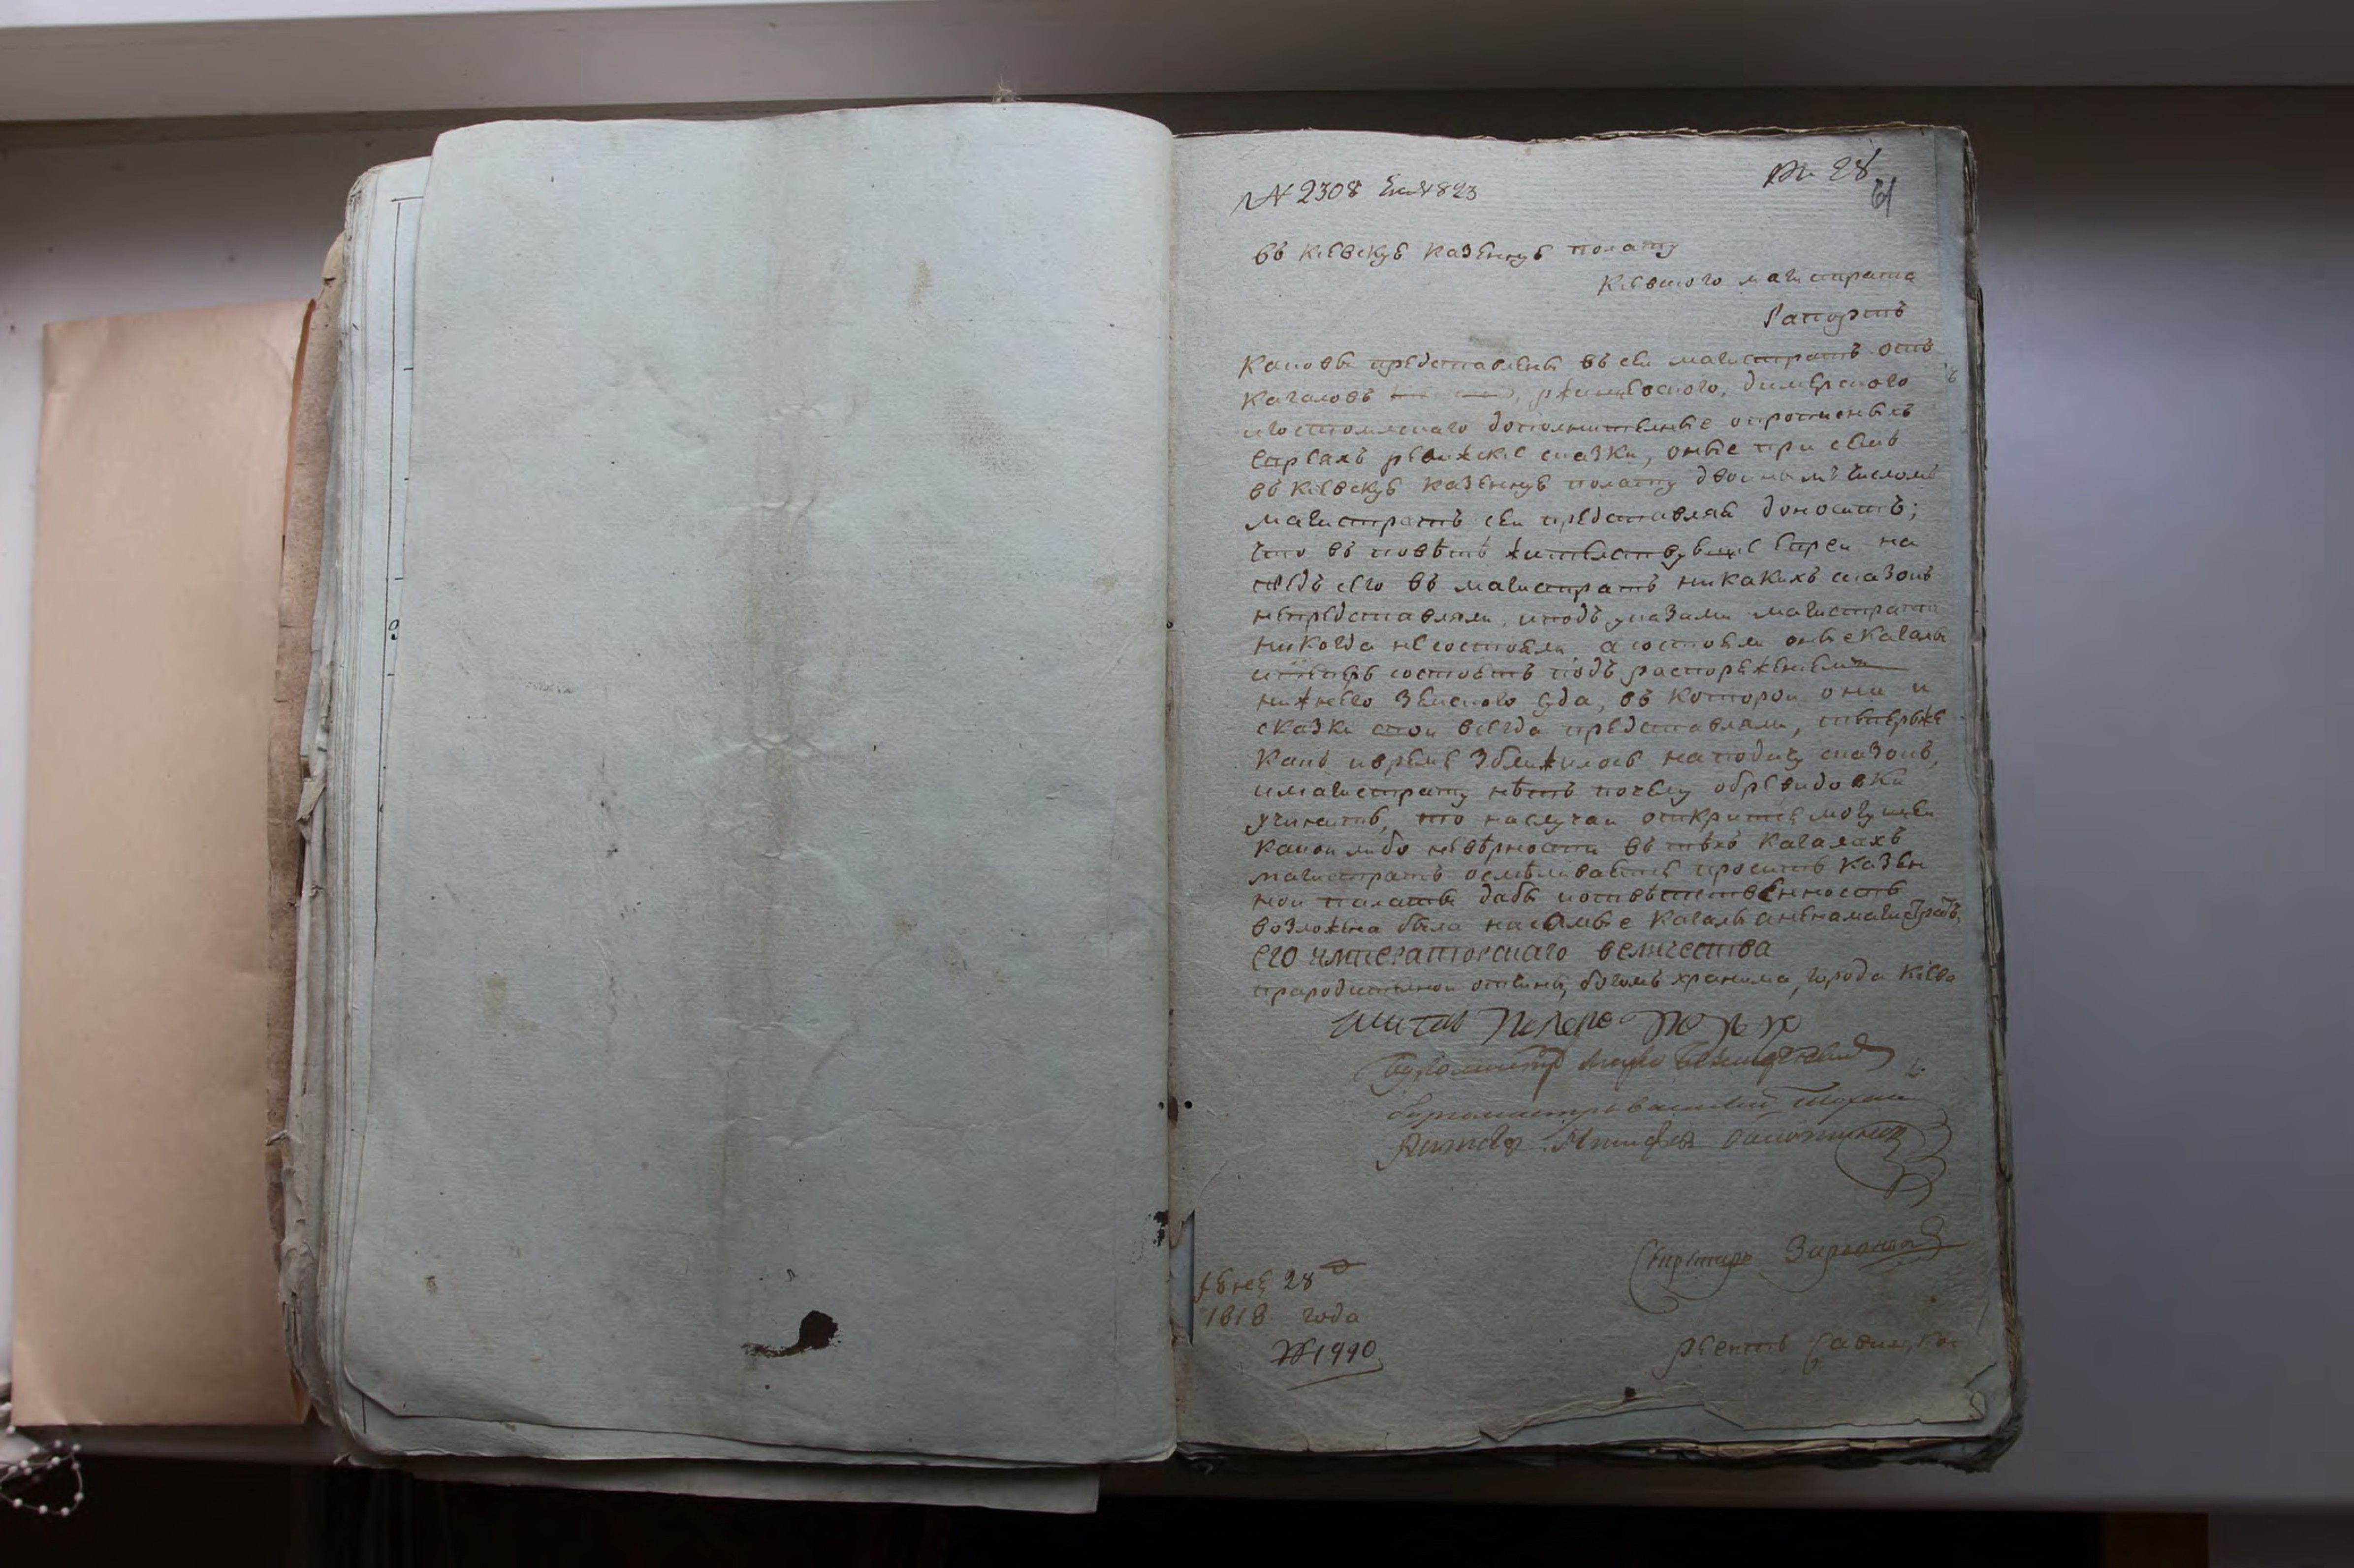 № 2308
28
61
въ кіевскую казенную полату
Кіевского магистрата
Рапортъ
Каковы представлены въ сей магистратъ отъ
кагаловъ ржищевского, димерского
игостомлскаго дополнителные опрописныхъ
евреахъ ревижскіе сказки, оные при семъ
въ кіевскую казенную полату двойнымъ числомъ
магистратъ сей представляя доноситъ;
что въ повѣтѣ жителствующіе евреи на
предъ сего въ магистратъ никакихъ сказокъ
непредставляли, иподъ указами магистрата
никогда несостояли, а состояли оные кагалы
итеперь состоятъ подъ распоряженіемъ
нижнего земского суда, въ которой они и
сказки свои всегда представляли, теперьже
какъ ивремя зближилось наподачу сказокъ,
имагистрату нѣтъ почему обревидовки
учинить, то наслучай открытія могущей
какой либо невѣрности въ тѣхъ кагалахъ
магистратъ осмѣливается просить казен
ной палаты дабы иответственность
возложена была насамые кагалы аненамагистратъ,
его императорскаго величества
прародителной отчины, богомъ хранима, города Кіева
Бургомистръ
бургомистръ Василій
Секретарь
іюня 28
1818 года
№ 1990